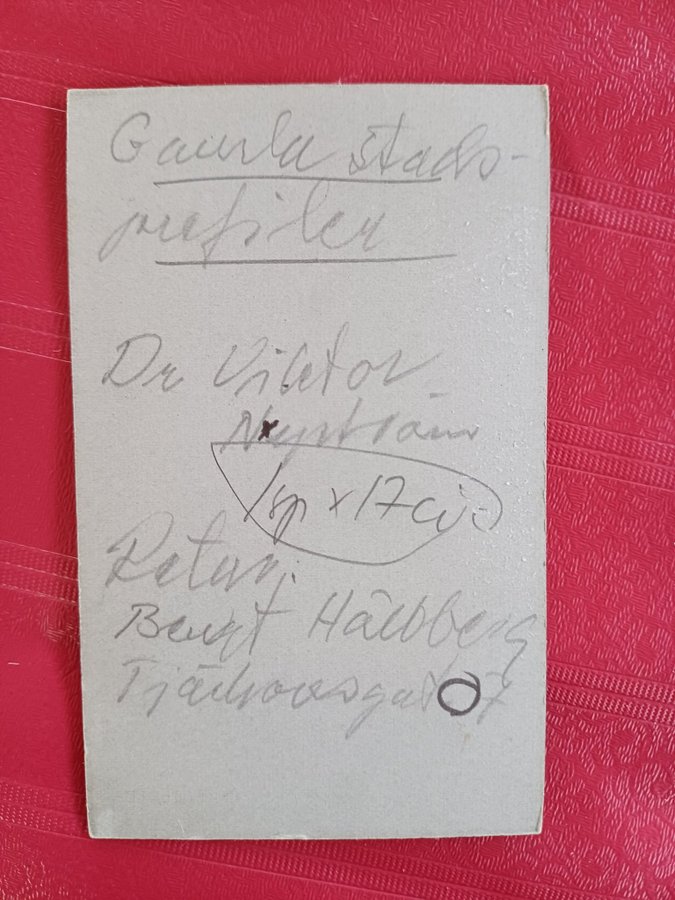 Gamla stads-
profiler
Dr Viktor
Nyström
1 sp x 17 cic
Retur:
Bengt Hallberg
7